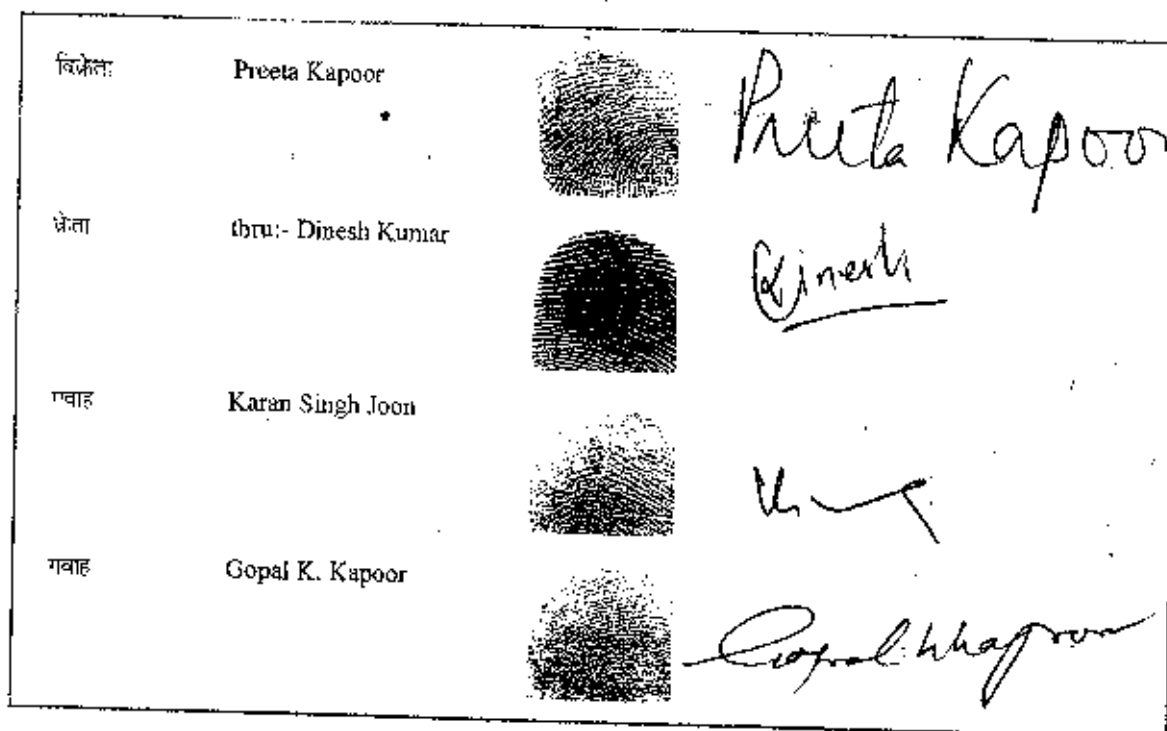 विक्रेता Preeta Kapoor Preeta Kapoor
क्रेता thru:- Dinesh Kumar Dinesh
गवाह Karan Singh Joon
गवाह Gopal K. Kapoor Gopal Kkapoor